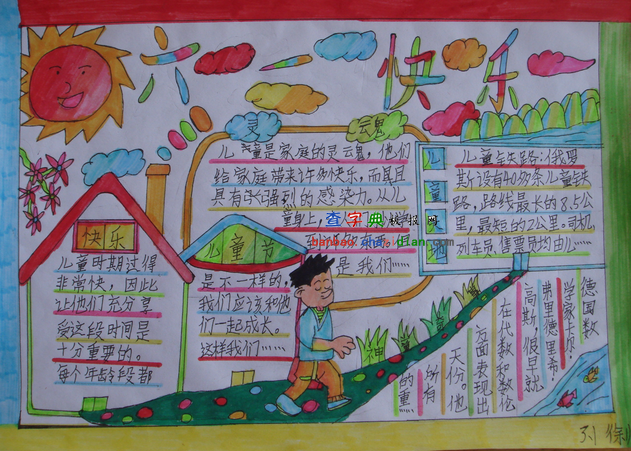 六一快乐
灵云鬼
儿童是家庭的灵云鬼，他们
给家庭带来许多快乐，而且
具有强烈的感染力。从儿
童身上，
是我们……
查字典 手抄报 网
儿童 地
儿童铁路：俄罗
斯设有40多条儿童铁
路，路线最长的8.6公
里，最短的2公里。司机
列车员、售票员均由儿……
快乐
儿童时期过得
非常快，因此
让他们充分享
受这段时间是
十分重要的。
每个年龄段都
儿童节
是不一样的，
我们应该和他
们一起成长。
这样我们……
神童
德国数
学家卡尔·
弗里德里希·
高斯，很早就
在代数和数论
方面表现出
天份。他
所有
的重